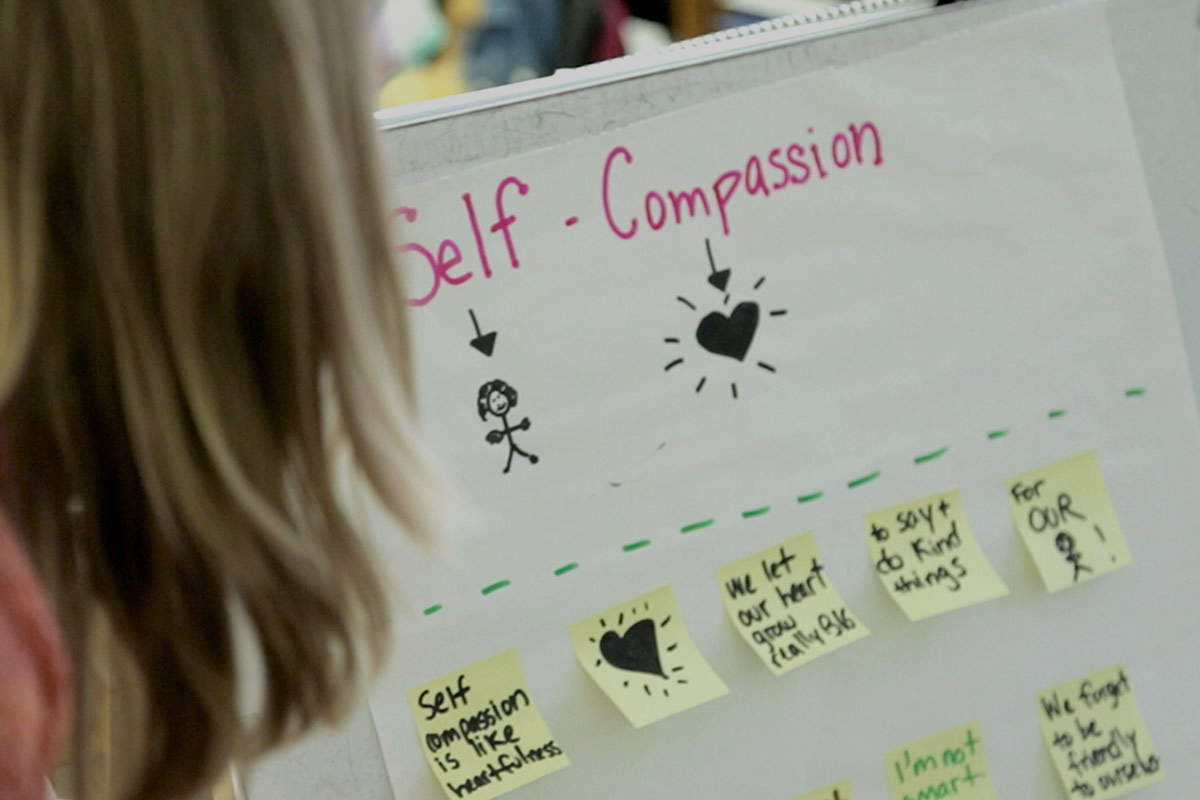 Self - Compassion
Self
compassion
is like
heartfulness
We let
our heart
grow
really BIG
to say +
do kind
things
For
OUR
!
I'm not
smart
We forget
to be
friendly
to ourselves